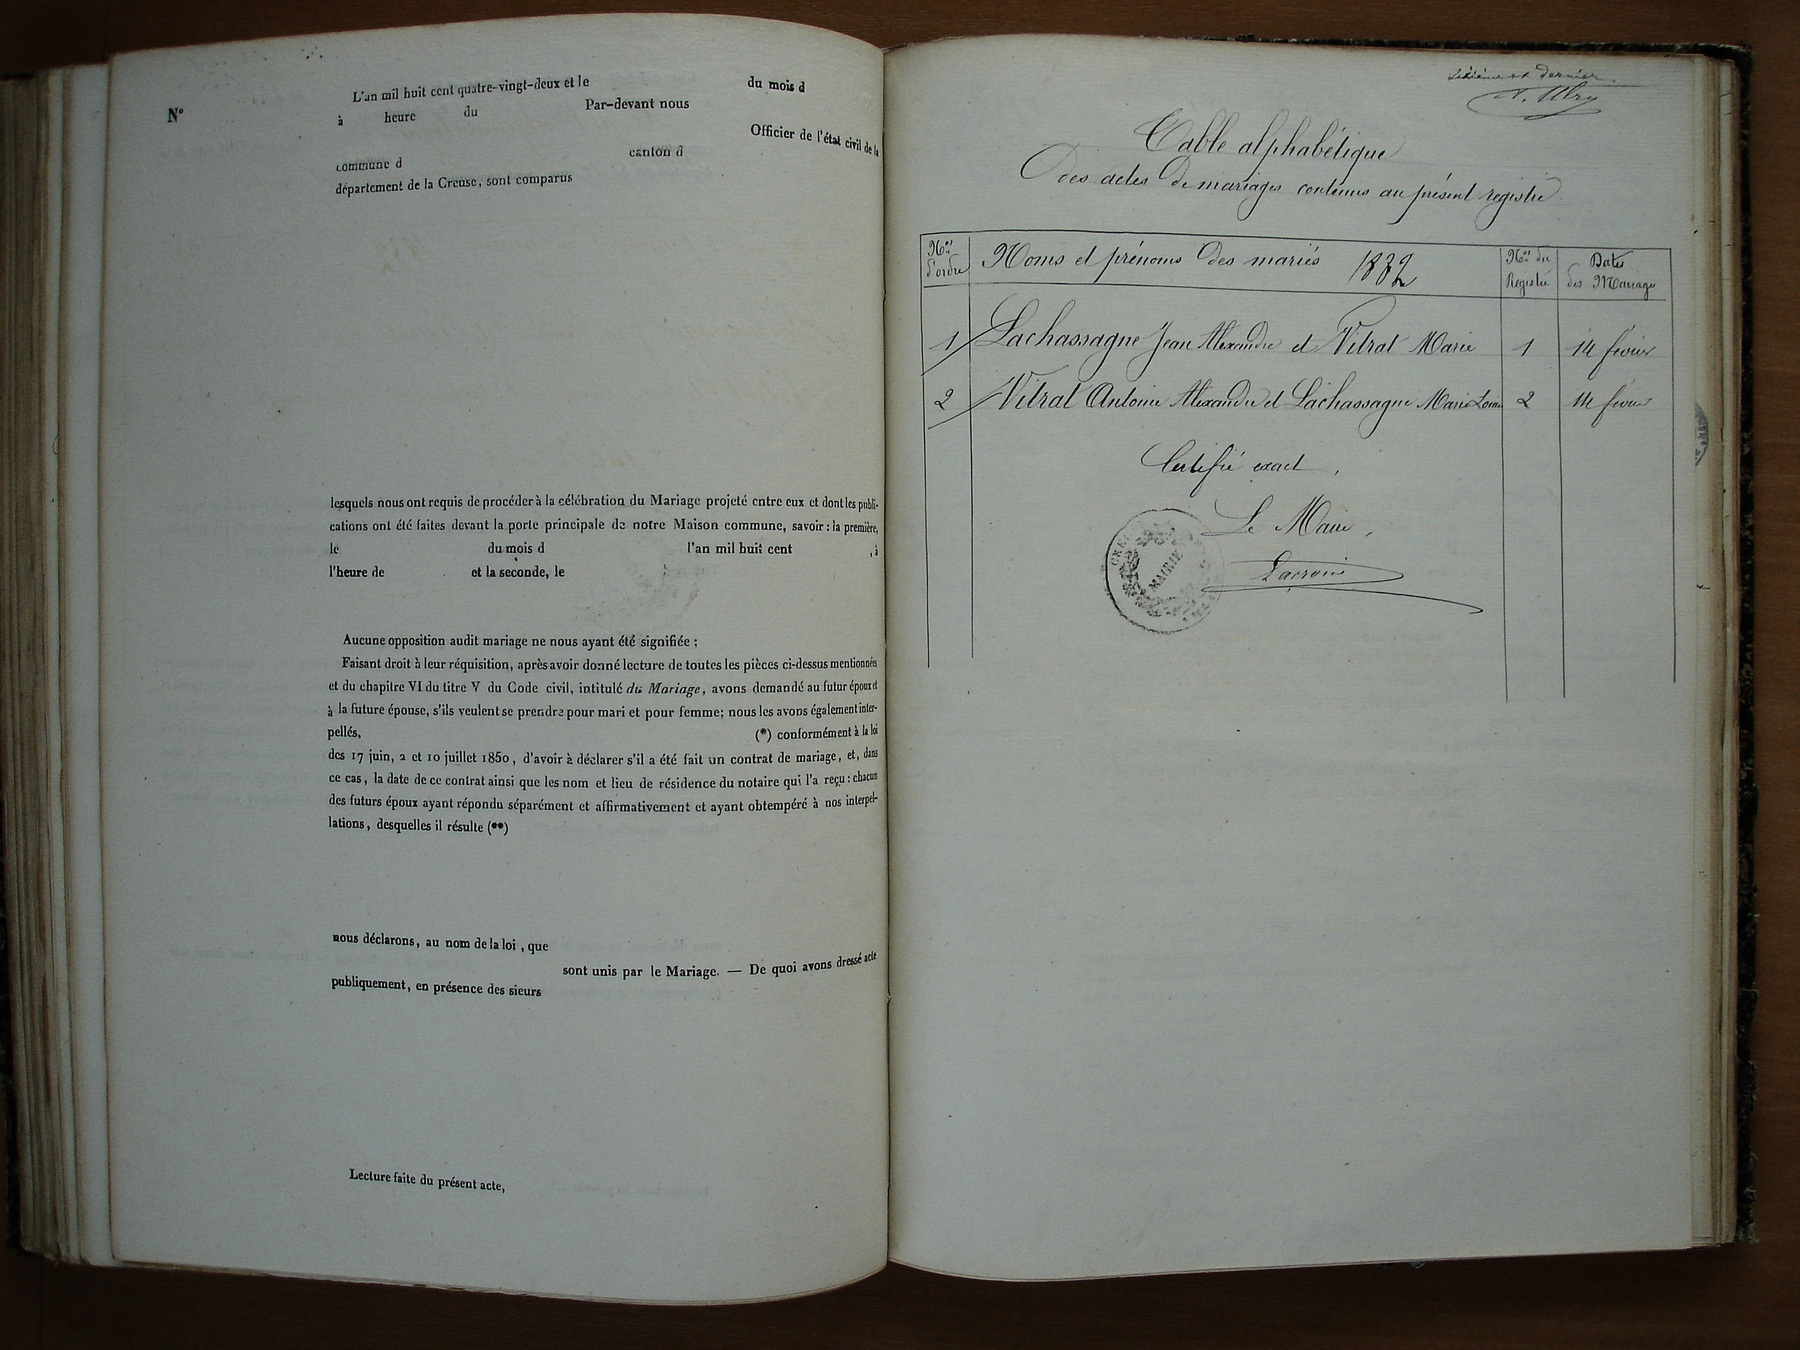 N°
L'an mil huit cent quatre-vingt-deux et le du mois d
à heure du Par-devant nous
Officier de l'état civil de la
commune d canton d
département de la Creuse, sont comparus
lesquels nous ont requis de procéder à la célébration du Mariage projeté entre eux et dont les publi-
cations ont été faites devant la porte principale de notre Maison commune, savoir : la première,
le du mois d l'an mil huit cent , à
l'heure de et la seconde, le
Aucune opposition audit mariage ne nous ayant été signifiée ;
Faisant droit à leur réquisition, après avoir donné lecture de toutes les pièces ci-dessus mentionnées
et du chapitre VI du titre V du Code civil, intitulé du Mariage, avons demandé au futur époux et
à la future épouse, s'ils veulent se prendre pour mari et pour femme; nous les avons également inter-
pellés, (*) conformément à la loi
des 17 juin, 2 et 10 juillet 1850, d'avoir à déclarer s'il a été fait un contrat de mariage, et, dans
ce cas, la date de ce contrat ainsi que les nom et lieu de résidence du notaire qui l'a reçu : chacun
des futurs époux ayant répondu séparément et affirmativement et ayant obtempéré à nos interpel-
lations, desquelles il résulte (**)
nous déclarons, au nom de la loi, que
sont unis par le Mariage. — De quoi avons dressé acte
publiquement, en présence des sieurs
Lecture faite du présent acte,
et dernier
Table alphabétique
Des actes De mariages contenus au présent registre
Nos d'ordre Noms et prénoms Des mariés 1882 Nos du Registre Dates des Mariages
1 Lachassagne Jean Alexandre et Vitrat Marie 1 14 février
2 Vitrat Antoine Alexandre et Lachassagne Marie Louise 2 14 février
Certifié exact,
Le Maire,
MAIRIE
Lacroix